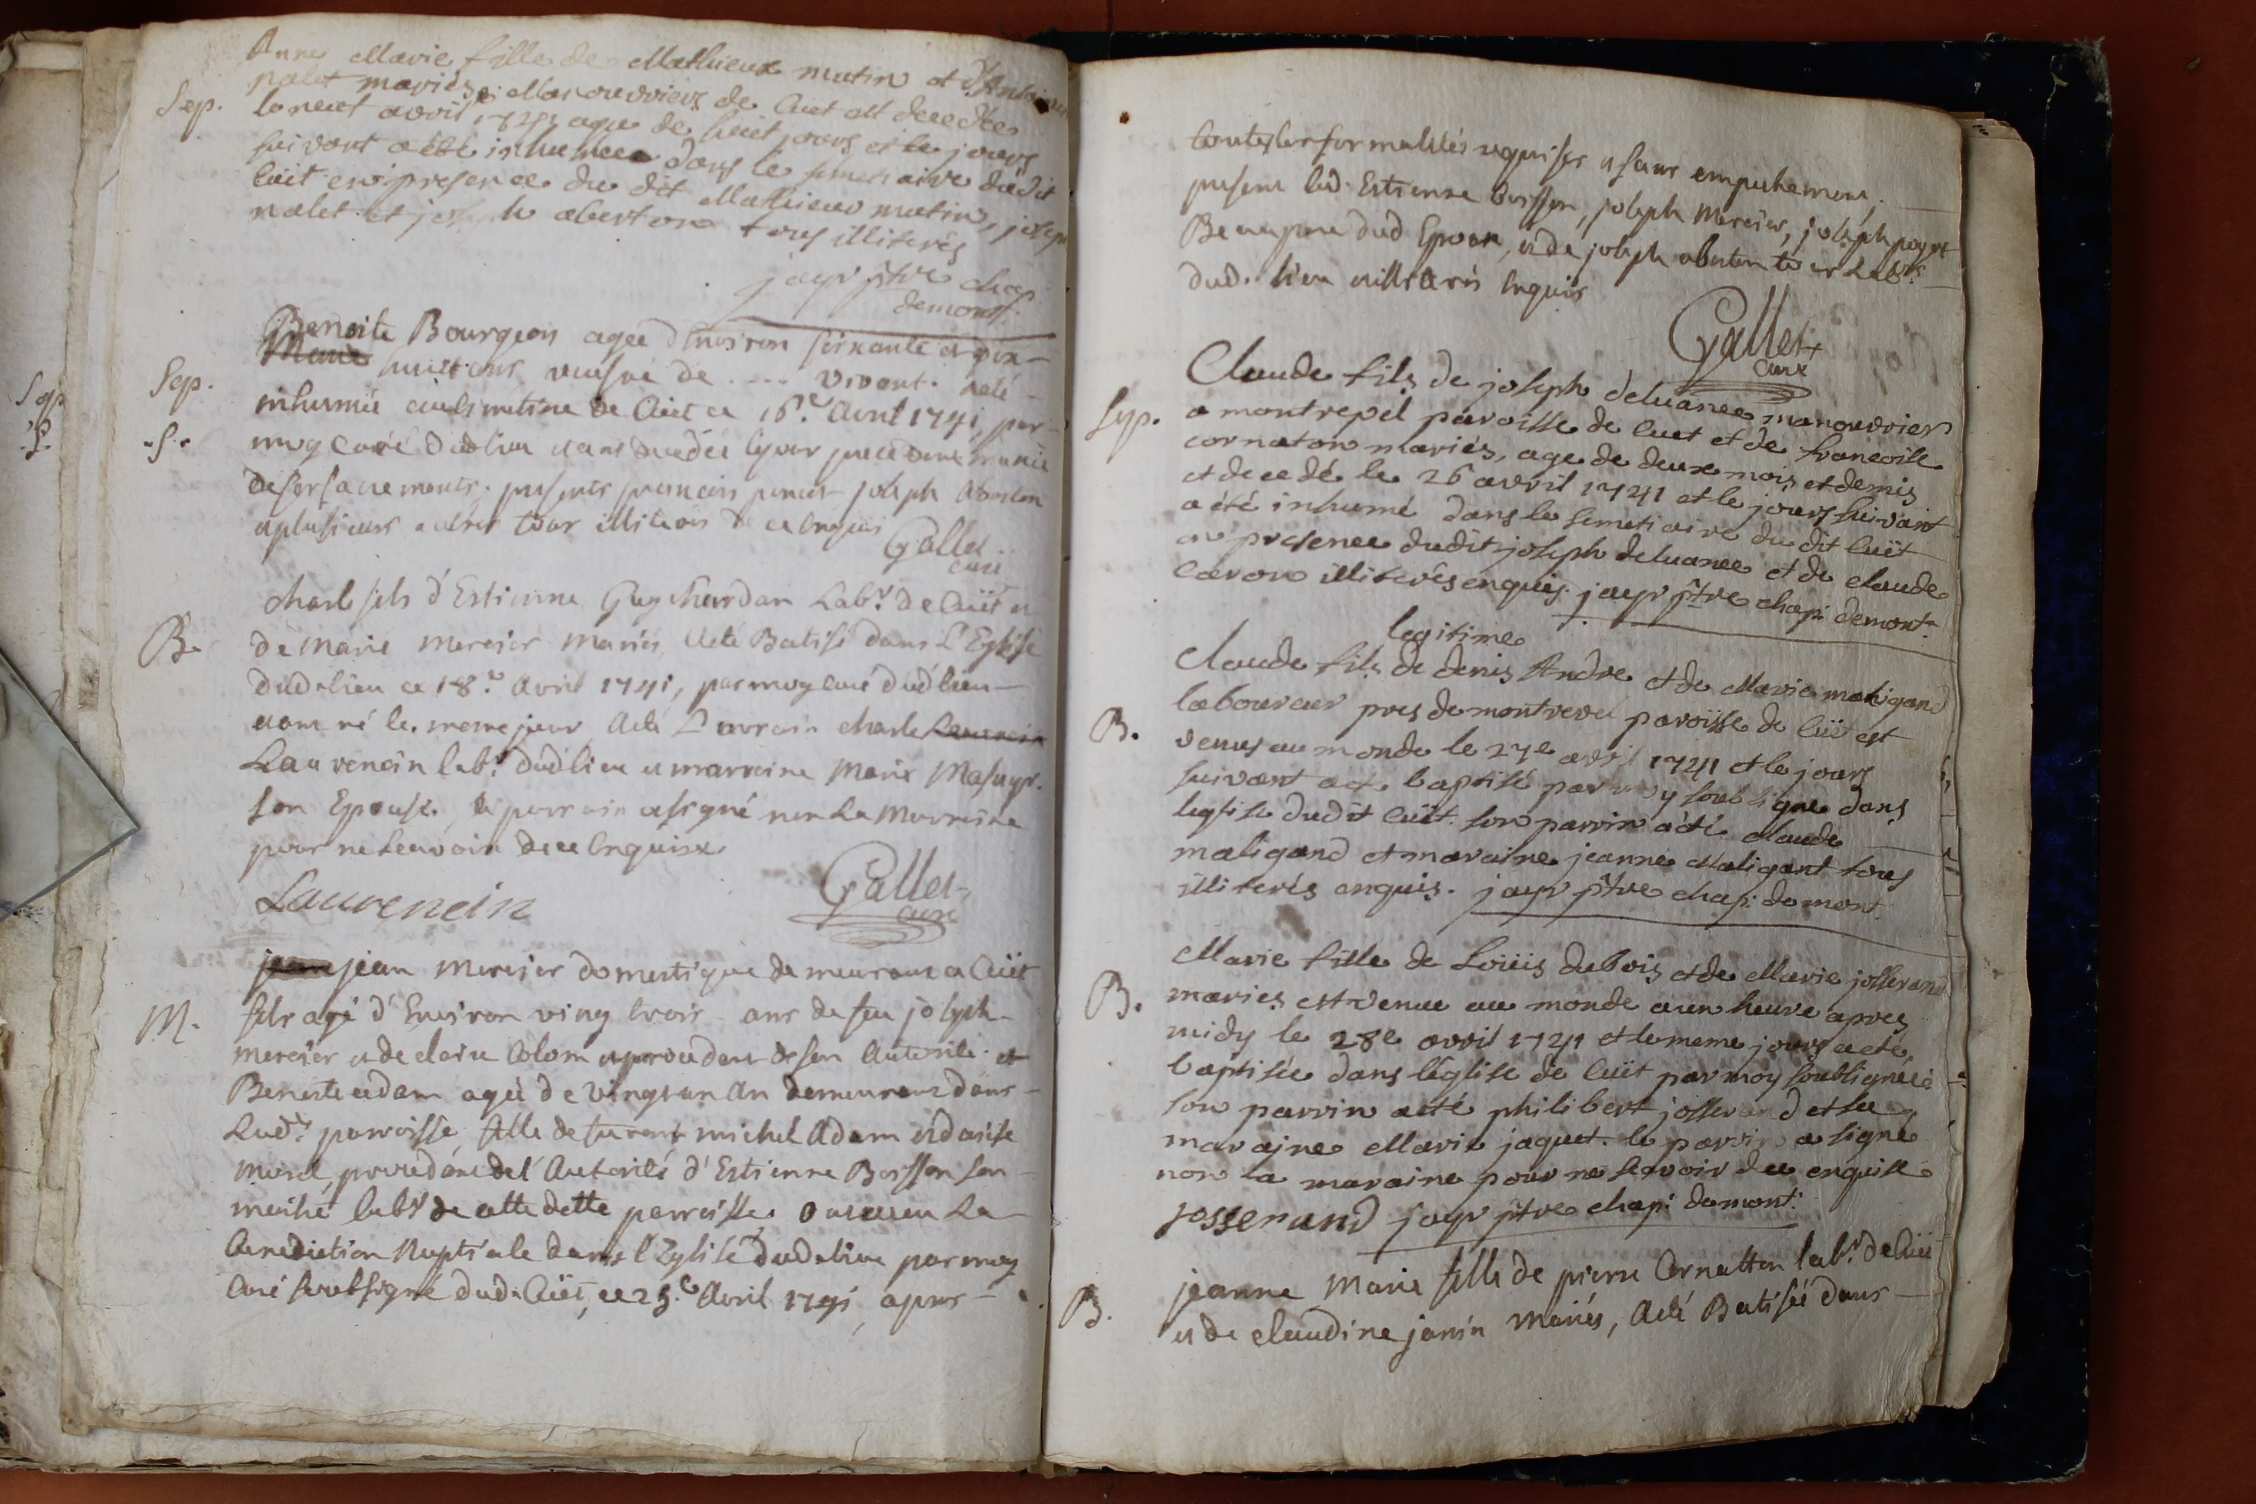 Anne Marie fille de Mathieux mutin et d'
Sep. nalet mariés Manouvriers de Cuet est decedee
le neuf avril 1741 agée de huit jours et le jours
suivant a été inhumee dans le simetiaire du dit
Cuet en presence du dit Mathieu mutin, joseph
nalet et joseph aberton tous illiterés
jayr ptre chap.
demont.
Benoite Bourgeon agée d'Environ soixante et dix
Sep. huit ans veusve de .... vivant. a été
inhumée au Cimetire de Cüet ce 16.e Avril 1741, par
.S. moy Curé dud lieu etant decedée le jour precedent munie
de ses sacrements. presents joseph Aberton
et plusieurs autres tous illiterés de ce Enquis
Gallet
curé
charle fils d'Estienne Guychardan Lab.r de Cüet et
B. de Marie Mercier Mariés, a été Batisé dans l'Eglise
dud. lieu ce 18.e Avril 1741, par moy curé dud lieu
etant né le meme jour a été Parrain charle Laurencin
Laurencin lab.r dud lieu et marreine Marie Masuyr
son Epouse, le parrain a signé non La Marreine
pour ne scavoir de ce Enquise
Laurencin Gallet
curé
jean Mercier domestique demeurant a Cüet
M. fils agé d'Environ ving trois ans de feu joseph
mercier et de claire Colom procedant de son Autorité et
Benoite adam agée de vingt un An demeurant dans
Lad.e parroisse fille de furent michel Adam et
Morel, procedant de l'Autorité d'Estienne Boisson son
lab.r de cette dette parroisse, ont receu La
Benediction Nuptiale dans l'Eglise dud. lieu par moy
Curé soubsigné dud. Cüet, ce 25.e Avril 1741 apres
toutes les formalités requises et sans empechement.
presens led. Estienne boisson, joseph Mercier, joseph
dud Epoux, et de joseph aberton tous Lab.rs
dud. lieu illiterés Enquis
Gallet
Curé
Claude fils de joseph deluance manouvrier
Sep. a montrepel paroisse de Cuet et de francoise
cornaton mariés, age de deux mois et demis
et decedé le 26 avril 1741 et le jours suivant
a été inhumé dans le simetiaire du dit Cuët
en presence dudit joseph deluance et de claude
caron illiterés enquis. jayr ptre chap. demont.
legitime
Claude fils de denis Andre et de Marie maligand
laboureur pres de montrevel paroisse de Cüet est
B. venus au monde le 27e avril 1741 et le jours
suivant a été baptisé par moy soubsigne dans
leglise dudit Cüet. son parrin a été claude
maligand et maraine jeanne Maligant tous
illiterés enquis. jayr ptre chap. de mont.
Marie fille de Loüis dubois et de Marie josserand
B. maries est venue au monde a un heure apres
midy le 28e avril 1741 et le meme jours a été
baptisée dans l'église de Cüet par moy soubsigne
son parrin a été philibert josserand et la
maraine Marie jaquet. le parrin a signé
non la maraine pour ne scavoir de ce enquise
josserand jayr ptre chap. demont.
jeanne Marie fille de pierre Cornatton lab.r de Cüet
B. et de claudine janin Mariés, a été Batisée dans